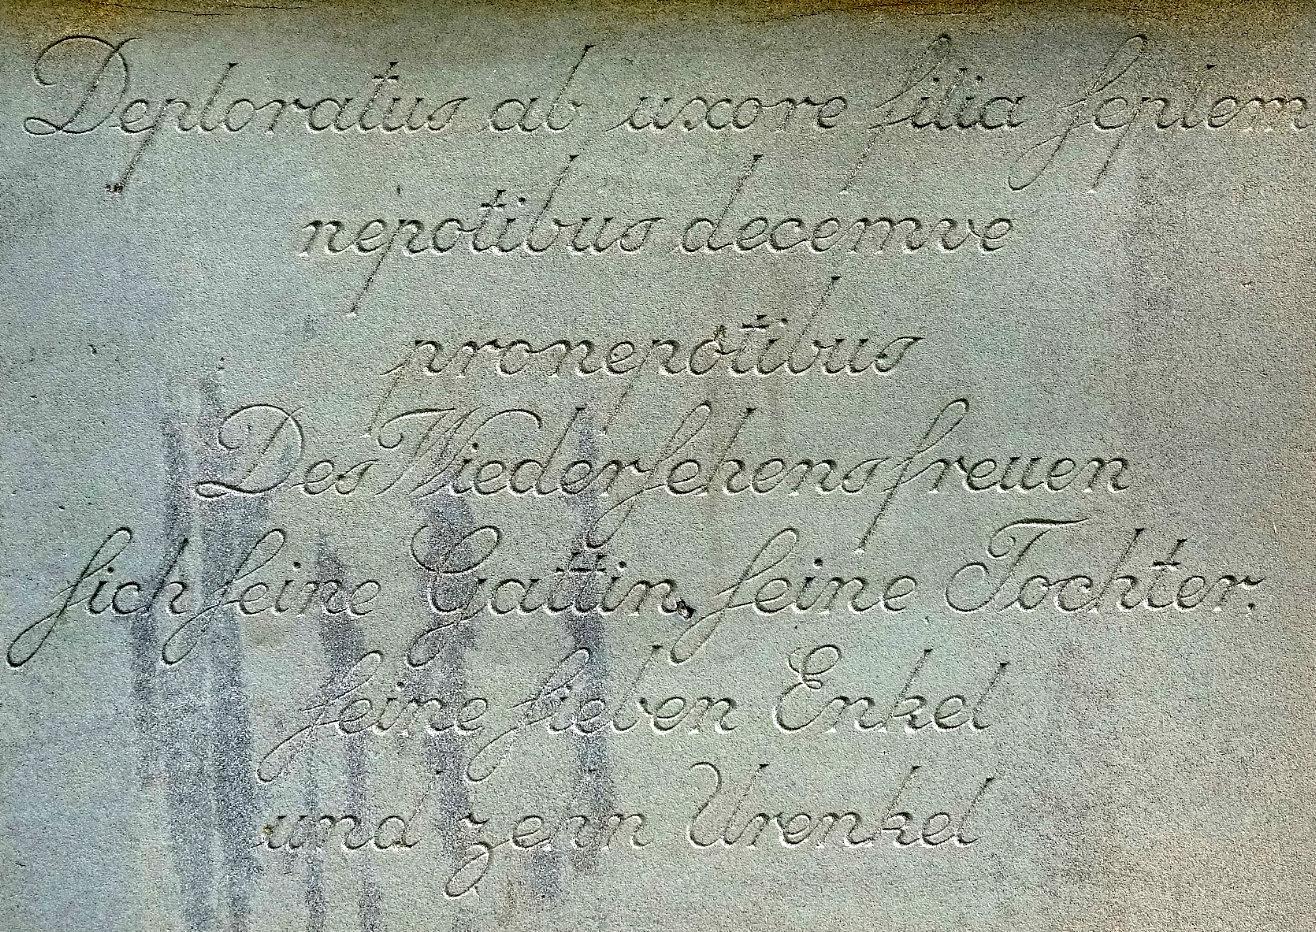 Deploratus ab uxore filia ſeptem
nepotibus decemve
pronepotibus
Des Wiederſehens freuen
ſich ſeine Gattin, ſeine Tochter.
ſeine ſieben Enkel
und zehn Urenkel